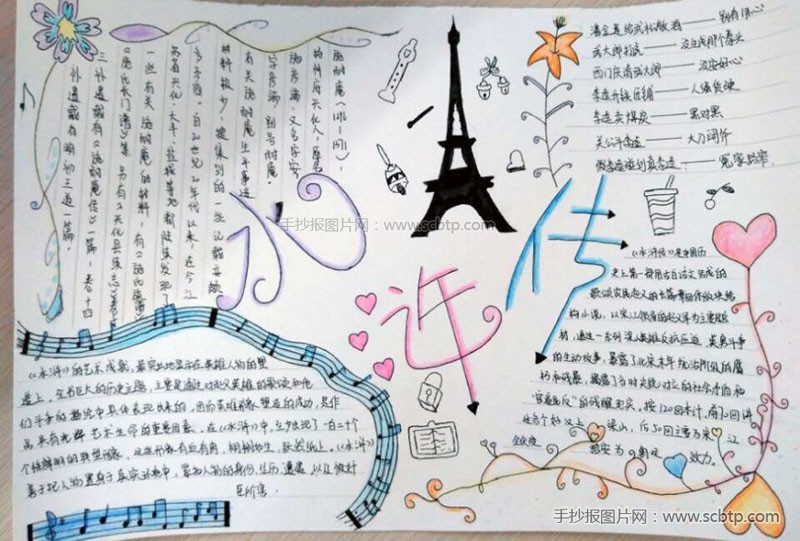 施耐庵(1296-1371),
兴化人,原名
施彦端,又名字安
字彦端,别号耐庵。
有关施耐庵生平事迹
材料极少,搜集到的一些记载亦颇
多矛盾。自20世纪20年代以来,在今江
苏省兴化、大丰、盐城等地都陆续发现了
一些有关施耐庵的材料,有《施氏
《施氏长门谱》等,另有《兴化县续志》卷十
三补遗载有《施耐庵传》一篇,卷十四
补遗载有明初王道一篇。
潘金莲给武松敬酒——别有用心
武大郎打虎——没生成那个拳头
西门庆请武大郎——没安好心
李逵
李逵卖煤炭——黑对黑
关公斗李逵——大刀阔斧
假李逵碰到真李逵——冤家路窄
水浒传
手抄报图片网:www.scbtp.com
《水浒传》是中国历
史上第一部用古白话文写成的
歌颂农民起义的长篇章回体版块结
构小说,以宋江领导的起义军为主要题
材,通过一系列梁山英雄反抗压迫、英勇斗争
的生动故事,暴露了北宋末年统治阶级的腐
朽和残暴,揭露了当时尖锐对立的社会矛盾和
“官逼民反”的残酷现实。按120回本计,前70回讲
述各个好汉上梁山,后50回主要为宋江
全伙
招安为朝廷效力。
《水浒》的艺术成就,最突出地显示在英雄人物的塑
造上。全书巨大的历史主题,主要是通过对起义英雄的歌颂和他
们斗争的描绘中具体表现出来的。因而英雄形象塑造的成功,是作
品具有光辉艺术生命的重要因素。在《水浒》中,至少出现了一百三十个
个性鲜明的典型形象,这些形象有血有肉,栩栩如生,跃然纸上。《水浒》
善于把人物置身于真实环境中,紧扣人物的身份、经历、遭遇,以及他们
手抄报图片网:www.scbtp.com